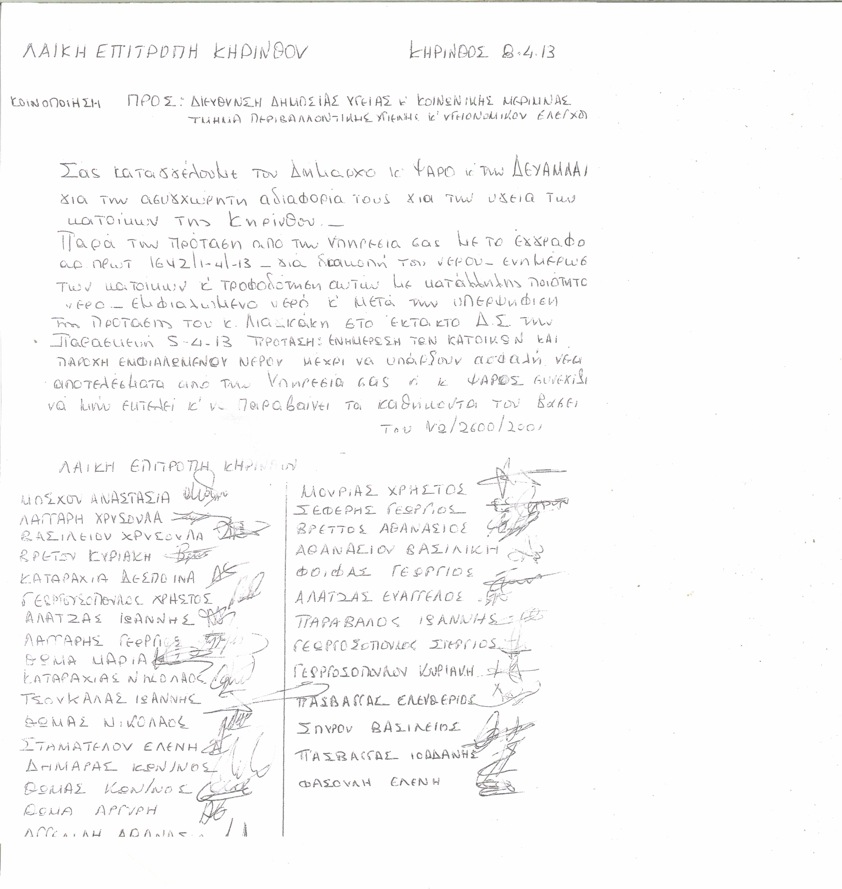 ΛΑΙΚΗ ΕΠΙΤΡΟΠΗ ΚΗΡΙΝΘΟΥ ΚΗΡΙΝΘΟΣ 8.4.13
ΚΟΙΝΟΠΟΙΗΣΗ ΠΡΟΣ: ΔΙΕΥΘΥΝΣΗ ΔΗΜΟΣΙΑΣ ΥΓΕΙΑΣ κ' ΚΟΙΝΩΝΙΚΗΣ ΜΕΡΙΜΝΑΣ
ΤΜΗΜΑ ΠΕΡΙΒΑΛΛΟΝΤΙΚΗΣ ΥΓΙΕΙΝΗΣ κ' ΥΓΕΙΟΝΟΜΙΚΟΥ ΕΛΕΓΧΟΥ
Σας καταγγέλουμε τον Δήμαρχο κ' ΨΑΡΟ κ' την ΔΕΥΑΜΛΑΙ
για την ασυγχώρητη αδιαφορία τους για την υγεία των
κατοίκων της Κηρίνθου._
Παρά την πρόταση απο την Υπηρεσία σας με το έγγραφο
αρ πρωτ 1642/1-4-13 _ για διακοπή του νερού_ ενημέρωση
των κατοίκων κ' τροφοδότηση αυτών με κατάλληλης ποιότητο
νερο_ εμφιαλωμένο νερό κ' μετά την υπερψήφιση
της πρότασης του κ. Λιασκάκη στο έκτακτο Δ.Σ την
Παρασκευή 5-4.13 ΠΡΟΤΑΣΗ: ΕΝΗΜΕΡΩΣΗ ΤΩΝ ΚΑΤΟΙΚΩΝ ΚΑΙ
ΠΑΡΟΧΗ ΕΜΦΙΑΛΩΜΕΝΟΥ ΝΕΡΟΥ ΜΕΧΡΙ να υπάρξουν ασφαλή νεα
αποτελέσματα απο την Υπηρεσία σας κ ΨΑΡΟΣ συνεχίζει
να μην εκτελεί κ' να παραβαίνει τα καθήκοντα του βάσει
του Υ2/2600/2001
ΛΑΙΚΗ ΕΠΙΤΡΟΠΗ ΚΗΡΙΝΘΟΥ
ΜΟΣΧΟΥ ΑΝΑΣΤΑΣΙΑ
ΛΑΓΓΑΡΗ ΧΡΥΣΟΥΛΑ
ΒΑΣΙΛΕΙΟΥ ΧΡΥΣΟΥΛΑ
ΒΡΕΤΟΥ ΚΥΡΙΑΚΗ
ΚΑΤΑΡΑΧΙΑ ΔΕΣΠΟΙΝΑ
ΓΕΩΡΓΟΥΣΟΠΟΥΛΟΣ ΧΡΗΣΤΟΣ
ΑΛΑΤΖΑΣ ΙΩΑΝΝΗΣ
ΛΑΓΓΑΡΗΣ ΓΕΩΡΓΙΟΣ
ΘΩΜΑ ΜΑΡΙΑ
ΚΑΤΑΡΑΧΙΑΣ ΝΙΚΟΛΑΟΣ
ΤΣΟΥΚΑΛΑΣ ΙΩΑΝΝΗΣ
ΘΩΜΑΣ ΝΙΚΟΛΑΟΣ
ΣΤΑΜΑΤΕΛΟΥ ΕΛΕΝΗ
ΔΗΜΑΡΑΣ ΚΩΝ/ΝΟΣ
ΘΩΜΑΣ ΚΩΝ/ΝΟΣ
ΘΩΜΑ ΑΡΓΥΡΗ
ΜΟΥΡΙΑΣ ΧΡΗΣΤΟΣ
ΣΕΦΕΡΗΣ ΓΕΩΡΓΙΟΣ
ΒΡΕΤΤΟΣ ΑΘΑΝΑΣΙΟΣ
ΑΘΑΝΑΣΙΟΥ ΒΑΣΙΛΙΚΗ
ΦΟΙΦΑΣ ΓΕΩΡΓΙΟΣ
ΑΛΑΤΖΑΣ ΕΥΑΓΓΕΛΟΣ
ΠΑΡΑΒΑΛΟΣ ΙΩΑΝΝΗΣ
ΓΕΩΡΓΟΣΟΠΟΥΛΟΣ ΣΤΕΡΓΙΟΣ
ΓΕΩΡΓΟΣΟΠΟΥΛΟΥ ΚΥΡΙΑΚΗ
ΠΑΣΒΑΓΓΑΣ ΕΛΕΥΘΕΡΙΟΣ
ΣΠΥΡΟΥ ΒΑΣΙΛΕΙΟΣ
ΠΑΣΒΑΓΓΑΣ ΙΟΡΔΑΝΗΣ
ΦΑΣΟΥΛΗ ΕΛΕΝΗ